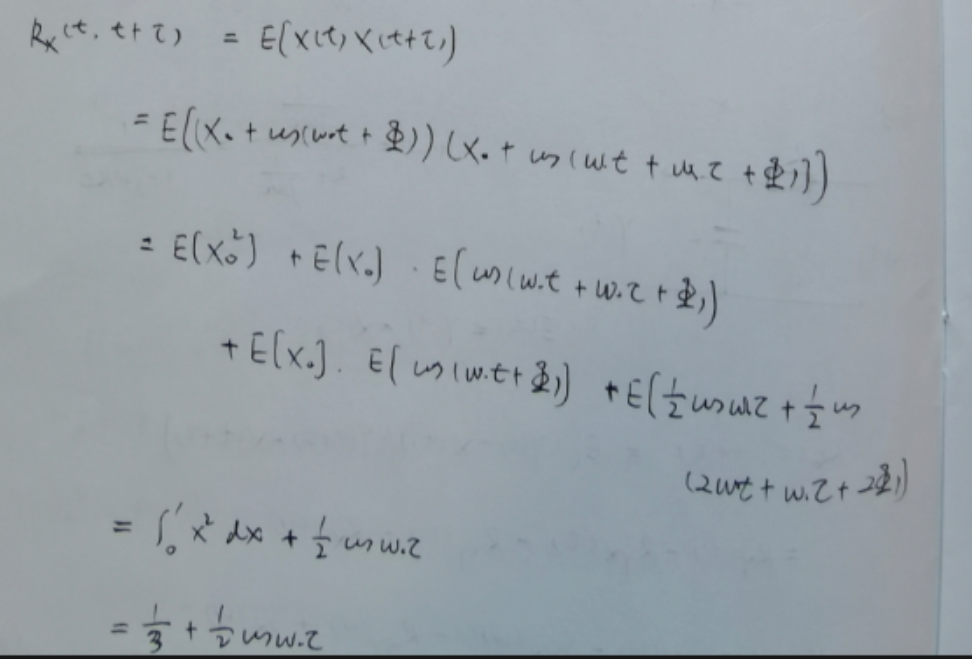 R_X(t, t+τ) = E[X(t) X(t+τ)]
= E[(X₀ + cos(ω₀t + Φ)) (X₀ + cos(ω₀t + ω₀τ + Φ))]
= E[X₀²] + E[X₀] · E[cos(ω₀t + ω₀τ + Φ)]
+ E[X₀] · E[cos(ω₀t + Φ)] + E[½ cos ω₀τ + ½ cos
(2ω₀t + ω₀τ + 2Φ)]
= ∫₀¹ x² dx + ½ cos ω₀τ
= ⅓ + ½ cos ω₀τ